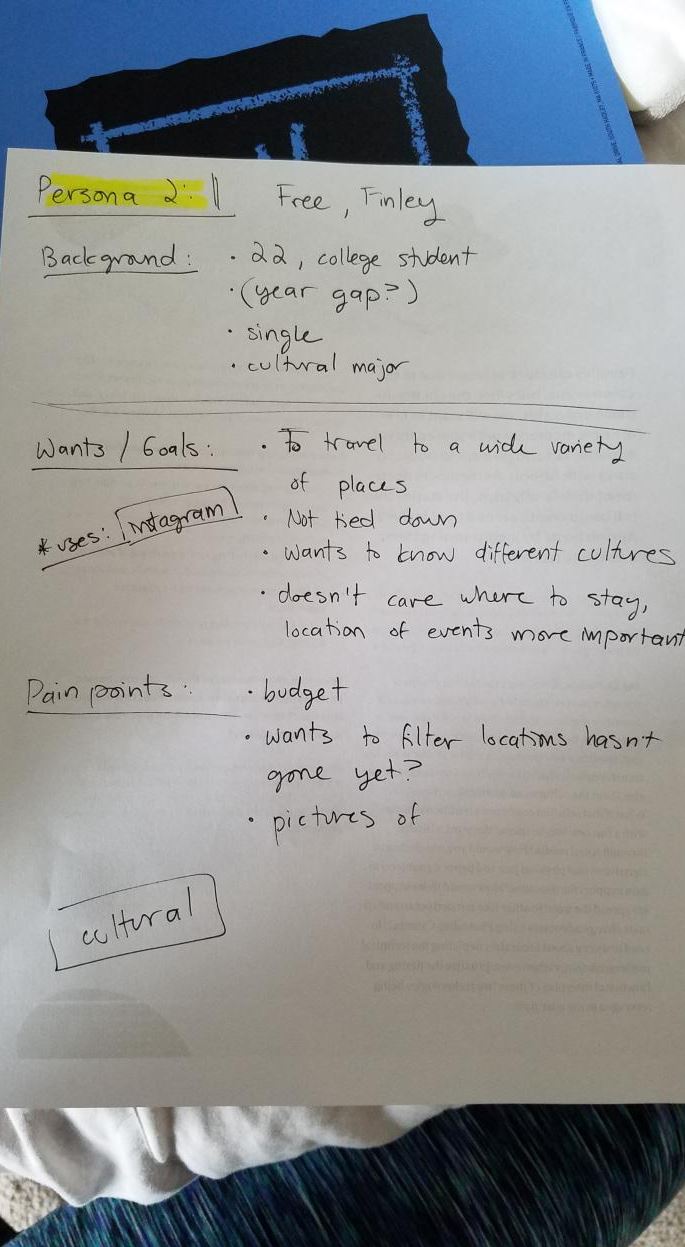 Persona 2: Free, Finley
Background: · 22, college student
· (year gap?)
· single
· cultural major
Wants / Goals: · To travel to a wide variety
of places
* uses: Instagram · Not tied down
· wants to know different cultures
· doesn't care where to stay,
location of events more important
Pain points: · budget
· wants to filter locations hasn't
gone yet?
· pictures of
cultural